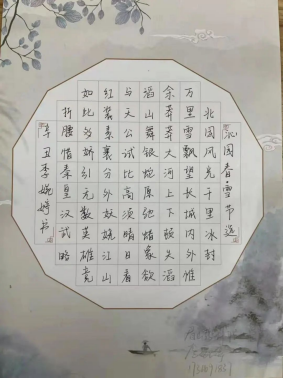 沁园春·雪节选
北国风光千里冰封
万里雪飘望长城内外惟
余莽莽大河上下顿失滔
滔山舞银蛇原驰蜡象欲
与天公试比高须晴日看
红装素裹分外妖娆江山
如此多娇引无数英雄竞
折腰惜秦皇汉武略
辛丑李婉婷书